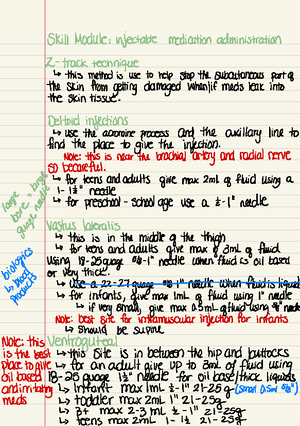 Skill Module: injectable medication administration
Z-track technique
↳ this method is use to help stop the subcutaneous part of
the skin from getting damaged when/if meds leak into
the skin tissue.
Deltoid injections
↳ use the acromine process and the auxillary line to
find the place to give the injection.
Note: this is near the brachial artery and radial nerve
so becareful.
↳ for teens and adults give max 2mL of fluid using a
1-1½" needle
↳ for preschool-school age use a ½-1" needle
large bore - large
guage needle
Vastus lateralis
↳ this is in the middle of the thigh
↳ for teens and adults give max of 3mL of fluid
using 18-25guage ⅝-1" needle when fluid is oil based
or very thick.
↳ use a 22-27 guage ⅝-1" needle when fluid is liquid
↳ for infants, give max 1mL of fluid using 1" needle
↳ if very small, give max 0.5mL of fluid using ⅝" needle
Note: best site for intramuscular injection for infants
↳ should be supine
biologics
↳ blood
products
Ventrogluteal
↳ this site is in between the hip and buttocks
↳ for an adult give up to 3mL of fluid using
18-25 guage 1½" needle for oil base/thick liquids
↳ infant max 1mL ½-1" 21-25g (small 0.5mL ⅝")
↳ toddler max 2mL 1" 21-25g
↳ 3+ max 2-3 mL ½-1" 21-25g
↳ teens max 2mL 1-1½ 21-25g
Note: this
is the best
place to give
oil based
and irritating
meds